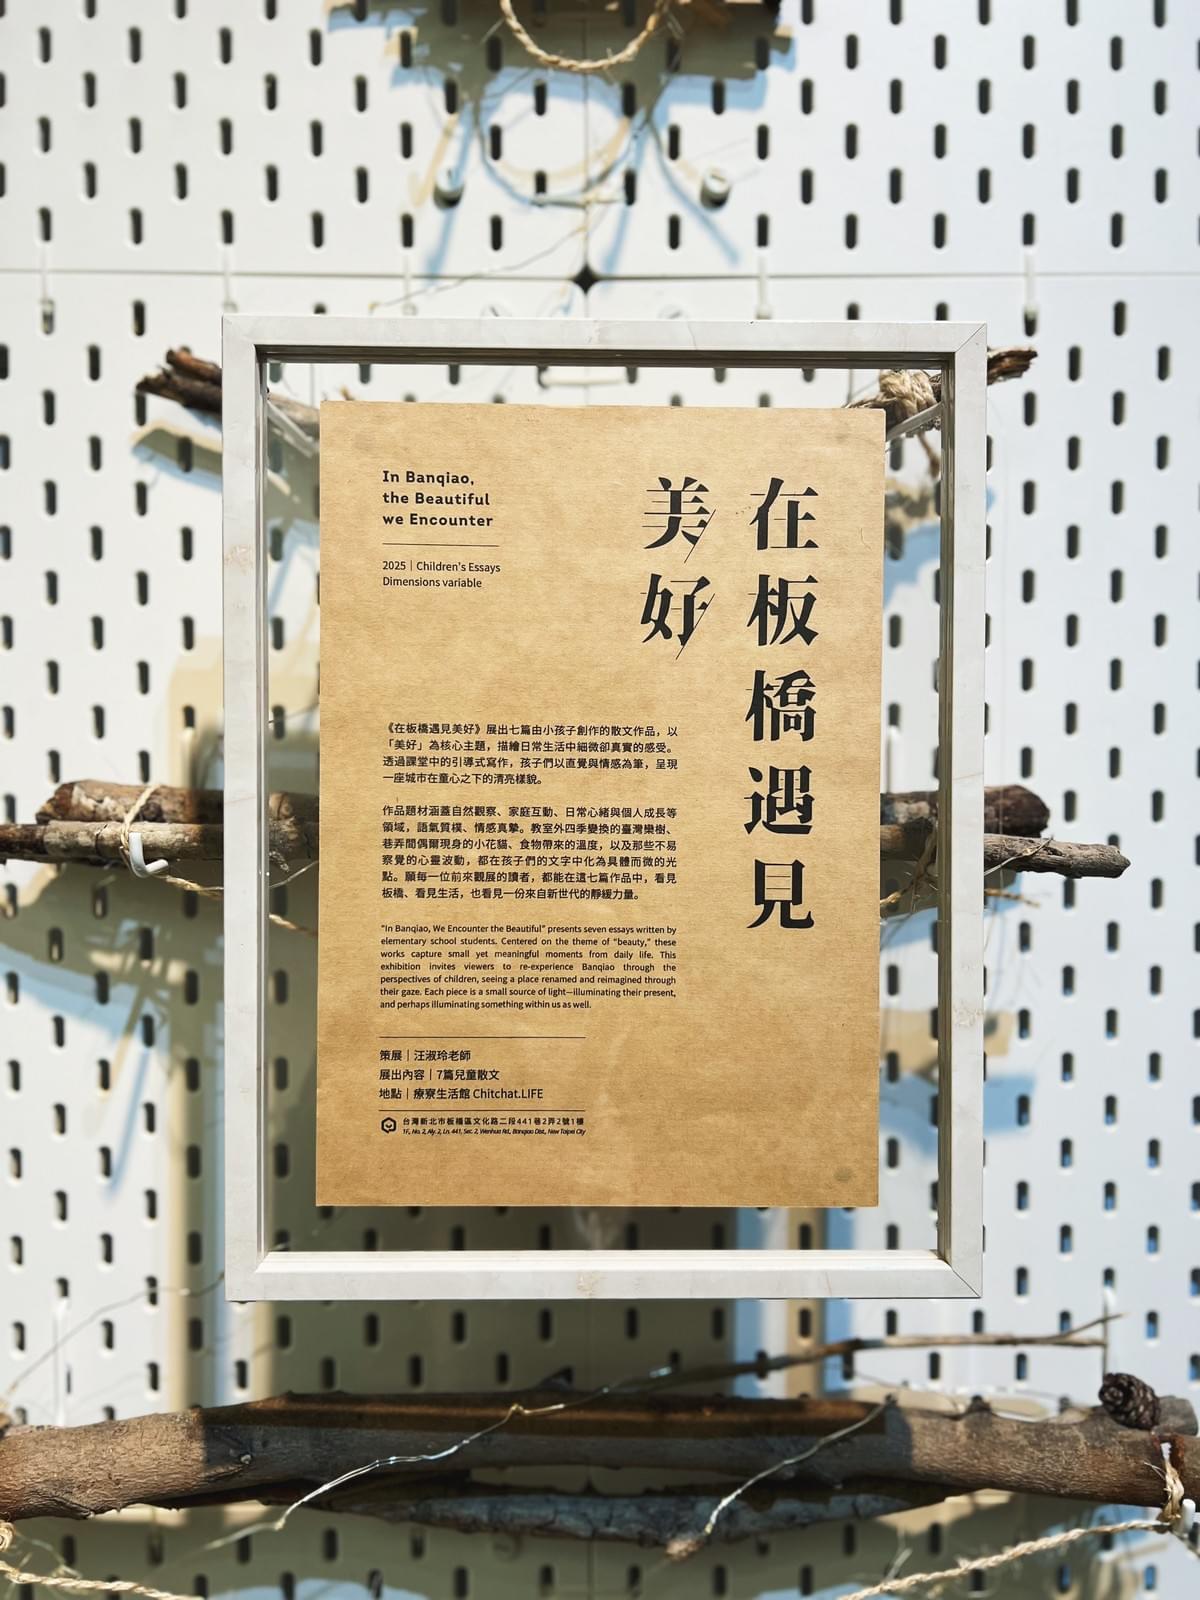 在板橋遇見
美好
In Banqiao,
the Beautiful
we Encounter
2025｜Children's Essays
Dimensions variable
《在板橋遇見美好》展出七篇由小孩子創作的散文作品，以
「美好」為核心主題，描繪日常生活中細微卻真實的感受。
透過課堂中的引導式寫作，孩子們以直覺與情感為筆，呈現
一座城市在童心之下的清亮樣貌。
作品題材涵蓋自然觀察、家庭互動、日常心緒與個人成長等
領域，語氣質樸、情感真摯。教室外四季變換的臺灣欒樹、
巷弄間偶爾現身的小花貓、食物帶來的溫度，以及那些不易
察覺的心靈波動，都在孩子們的文字中化為具體而微的光
點。願每一位前來觀展的讀者，都能在這七篇作品中，看見
板橋、看見生活，也看見一份來自新世代的靜緩力量。
"In Banqiao, We Encounter the Beautiful" presents seven essays written by
elementary school students. Centered on the theme of "beauty," these
works capture small yet meaningful moments from daily life. This
exhibition invites viewers to re-experience Banqiao through the
perspectives of children, seeing a place renamed and reimagined through
their gaze. Each piece is a small source of light—illuminating their present,
and perhaps illuminating something within us as well.
策展｜汪淑玲老師
展出內容｜7篇兒童散文
地點｜療寮生活館 Chitchat.LIFE
台灣新北市板橋區文化路二段441巷2弄2號1樓
1F., No. 2, Aly. 2, Ln. 441, Sec. 2, Wenhua Rd., Banqiao Dist., New Taipei City